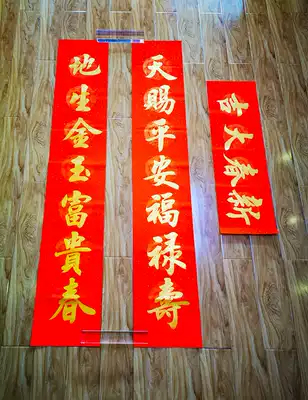 天賜平安福禄壽
地生金玉富貴春
新春大吉